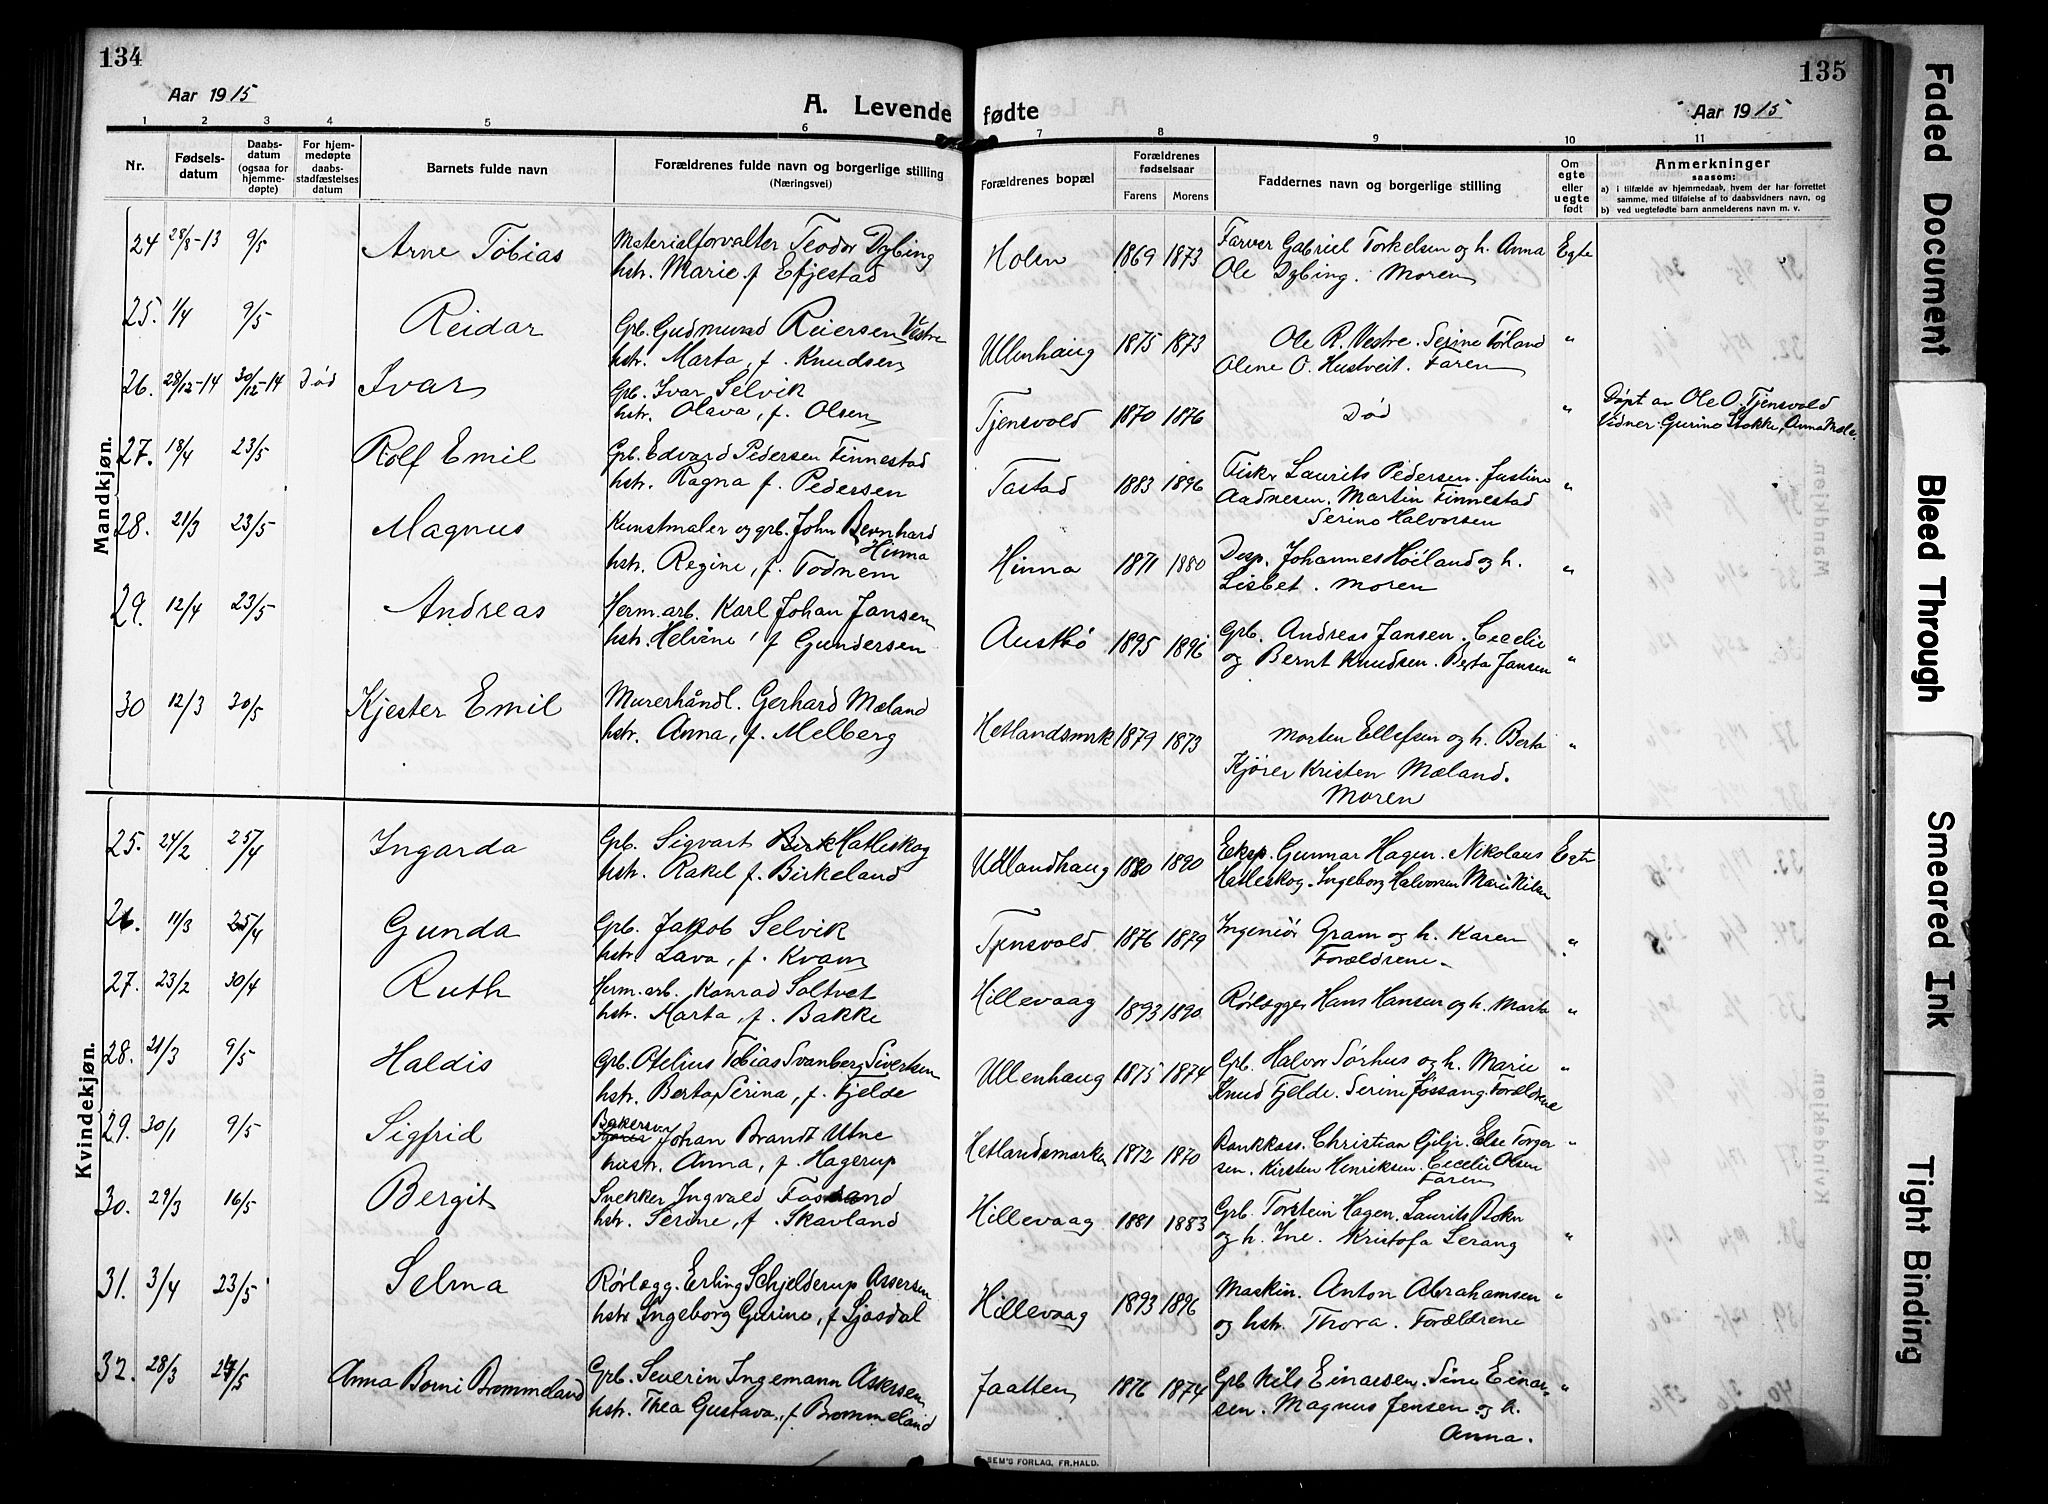 134
Aar 1915
A. Levende
1 2 3 4 5 6
Nr.
Fødsels-
datum
Daabs-
datum
(ogsaa for
hjemme-
døpte)
For hjem-
medøpte
daabs-
stadfæstelses
datum
Barnets fulde navn
Forældrenes fulde navn og borgerlige stilling
(Næringsvei)
Mandkjøn.
24 28/8-13 9/5 Arne Tobias Materialforvalter Teodor Dybing
hstr. Marie f. Efjestad
25. 1/4 9/5 Reidar Grb. Gudmund Reiersen Vestre
hstr. Marta, f. Knudsen
26. 28/12-14 30/12-14 Død Ivar Grb. Ivar Selvik
hstr. Olava, f. Olsen
27. 18/4 23/5 Rolf Emil Grb. Edvard Pedersen Finnestad
hstr. Ragna f. Pedersen
28. 21/3 23/5 Magnus Kunstmaler og grb. John Bernhard
Hinna
hstr. Regine, f. Todnem
29. 12/4 23/5 Andreas Herm.arb. Karl Johan Jansen
hstr. Helene, f. Gundersen
30 12/3 30/5 Kjester Emil Murerhåndl. Gerhard Mæland
hstr. Anna, f. Melberg
Kvindekjøn.
25. 24/2 25/4 Ingarda Grb. Sigvart Hatleskog
hstr. Rakel f. Birkeland
26. 11/3 25/4 Gunda Grb. Jakob Selvik
hstr. Lava, f. Kvam
27. 23/2 30/4 Ruth Herm.arb. Konrad Soltvet
hstr. Marta, f. Bakke
28. 21/3 9/5 Haldis Grb. Otelius Tobias Svanberg Sivertsen
hstr. Berta Serina, f. Fjelde
29. 30/1 9/5 Sigfrid Bakersv. Johan Brandt Utne
hustr. Anna, f. Hagerup
30. 29/3 16/5 Bergit Snekker Ingvald
hstr. Serine, f. Skavland
31. 3/4 23/5 Selma Rørlægg. Erling Schjelderup Assersen
hstr Ingeborg Gurine, f. Sjøsdal
32. 28/3 24/5 Anna Borni Brommeland Grb. Severin Ingemann Askersen
hstr. Thea Gustava, f. Brommeland
135
Aar 1915
fødte
7 8 9 10 11
Forældrenes bopæl
Forældrenes
fødselsaar
Farens Morens
Faddernes navn og borgerlige stilling
Om
egte
eller
uegte
født
Anmerkninger
saasom:
a) i tilfælde av hjemmedaab, hvem der har forrettet
samme, med tilføielse af to daabsvidners navn, og
b) ved uegtefødte barn anmelderens navn m. v.
Holen 1869 1873 Farver Gabriel Torkelsen og h. Anna Egte
Ole Dybing. Moren
Ullenhaug 1875 1873 Ole R. Vestre. Serine Førland "
Olene O. Hustveit. Faren
Tjensvold 1870 1876 Død " Døpt av Ole O. Tjensvold
Vidner: Gurine Stokke, Anna
Tastad 1883 1896 Fisker Laurits Pedersen. Justine "
Aadnesen. Martin Finnestad
Serine Halvorsen
Hinna 1871 1880 Desp. Johannes Høiland og h. "
Lisbet. Moren
Austbø 1895 1896 Grb. Andreas Jansen. Cecelie
og Bernt Knudsen. Berta Jansen "
Hetlandsmrk 1879 1873 Morten Ellefsen og h. Berta "
Kjører Kristen Mæland.
Moren
Udlandhaug 1880 1890 Eksp. Gunnar Hagen. Nikolaus Egte
Hatleskog. Ingeborg Halvorsen Marie Nilsen
Tjensvold 1876 1879 Ingeniør Gram og h. Karen "
Forældrene.
Hillevaag 1893 1890 Rørlægger Hans Hansen og h. Marta "
Ullenhaug 1875 1874 Grb. Halvor Sørhus og h. Marie "
Knud Fjelde. Serine Jøssang. Forældrene
Hetlandsmarken 1872 1870 Bankkass. Christian Giljr. Else Torger "
sen. Kirsten Henriksen. Cecelie Olsen
Faren
Hillevaag 1881 1883 Grb. Torstein Hagen. Laurits Bokn
og h. Ine. Kristofa Lerang "
Hillevaag 1893 1896 Maskin. Anton Abrahamsen "
og hstr. Thora. Forældrene
Jaatten 1876 1874 Grb Nils Einarsen. Sine Einar- "
sen. Magnus Jensen og h.
Anna.
SEM'S FORLAG, FR.HALD.
Faded Document
Bleed Through
Smeared Ink
Tight Binding